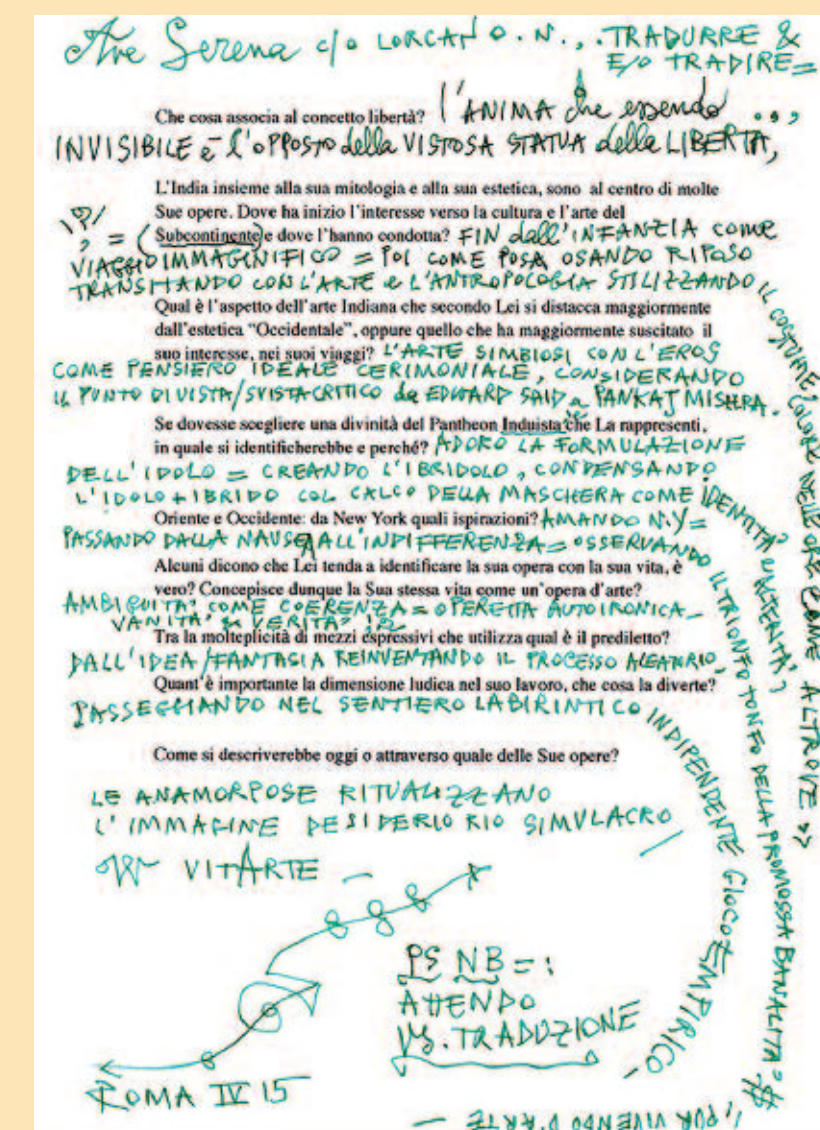 Ave Serena c/o LORCAN O. N., . TRADURRE &
E/O TRADIRE=
Che cosa associa al concetto libertà? l'ANIMA che essendo ...,
INVISIBILE è l'OPPOSTO della VISTOSA STATUA della LIBERTA,
L'India insieme alla sua mitologia e alla sua estetica, sono al centro di molte
Sue opere. Dove ha inizio l'interesse verso la cultura e l'arte del
Subcontinente e dove l'hanno condotta? FIN dall'INFANZIA COME
VIAGGIO IMMAGINIFICO = POI COME POSA OSANDO RIPOSO
TRANSITANDO CON L'ARTE e L'ANTROPOLOGIA STILIZZANDO
IL COSTUME, COLORE NELLE ORE COME ALTROVE »
Qual è l'aspetto dell'arte Indiana che secondo Lei si distacca maggiormente
dall'estetica "Occidentale", oppure quello che ha maggiormente suscitato il
suo interesse, nei suoi viaggi? L'ARTE SIMBIOSI CON L'EROS
COME PENSIERO IDEALE CERIMONIALE, CONSIDERANDO
IL PUNTO DI VISTA/SVISTA CRITICO da EDWARD SAID a PANKAJ MISHRA.
Se dovesse scegliere una divinità del Pantheon Induista che La rappresenti,
in quale si identificherebbe e perché? ADORO LA FORMULAZIONE
DELL'IDOLO = CREANDO L'IBRIDOLO, CONDENSANDO
L'IDOLO + IBRIDO COL CALCO DELLA MASCHERA COME IDENTITÀ
ALTERITÀ?
Oriente e Occidente: da New York quali ispirazioni? AMANDO N.Y=
PASSANDO DALLA NAUSEA ALL'INDIFFERENZA = OSSERVANDO
IL TRIONFO TONFO DELLA PROMOSSA BANALITÀ
Alcuni dicono che Lei tenda a identificare la sua opera con la sua vita, è
vero? Concepisce dunque la Sua stessa vita come un'opera d'arte?
AMBIGUITA' COME COERENZA = OPERETTA AUTOIRONICA
VANITA' & VERITA'
Tra la molteplicità di mezzi espressivi che utilizza qual è il prediletto?
DALL'IDEA/FANTASIA REINVENTANDO IL PROCESSO ALEATORIO
Quant'è importante la dimensione ludica nel suo lavoro, che cosa la diverte?
PASSEGGIANDO NEL SENTIERO LABIRINTICO
INDIPENDENTE GIOCO EMPIRICO -
Come si descriverebbe oggi o attraverso quale delle Sue opere?
LE ANAMORFOSE RITUALIZZANO
L'IMMAGINE DESIDERIO RIO SIMULACRO
VITARTE -
PS NB = :
ATTENDO
VS. TRADUZIONE
ROMA IV 15
PUR VIVENDO D'ARTE -